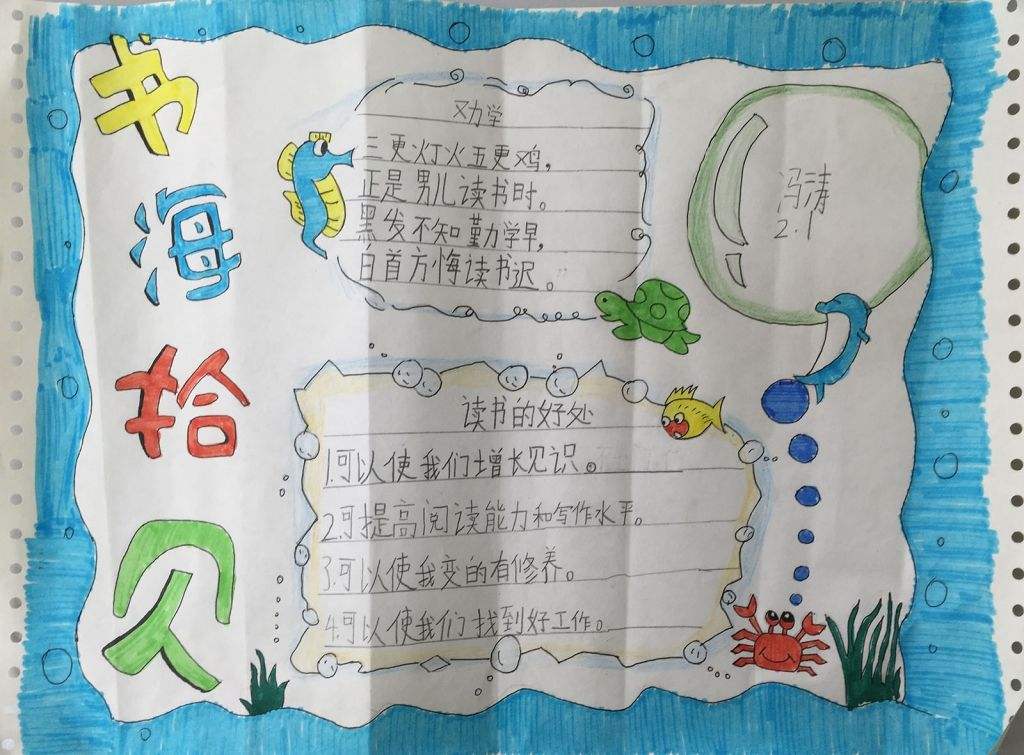 书海拾贝
劝学
三更灯火五更鸡，
正是男儿读书时。
黑发不知勤学早，
白首方悔读书迟。
冯涛
2.1
读书的好处
1.可以使我们增长见识。
2.可提高阅读能力和写作水平。
3.可以使我变的有修养。
4.可以使我们找到好工作。